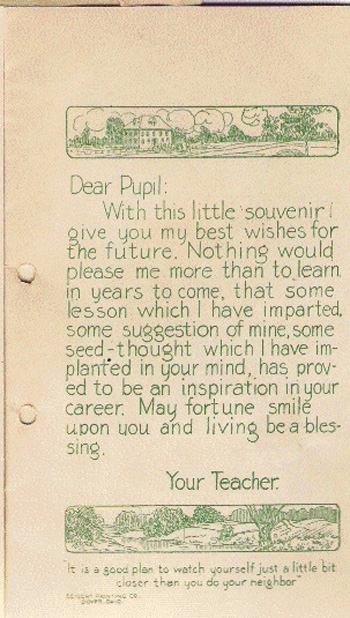 Dear Pupil:
With this little souvenir I
give you my best wishes for
the future. Nothing would
please me more than to learn
in years to come, that some
lesson which I have imparted,
some suggestion of mine, some
seed-thought which I have im-
planted in your mind, has prov-
ed to be an inspiration in your
career. May fortune smile
upon you and living be a bles-
sing.
Your Teacher.
"It is a good plan to watch yourself just a little bit
closer than you do your neighbor"
SEIBERT PRINTING CO.
DOVER, OHIO.